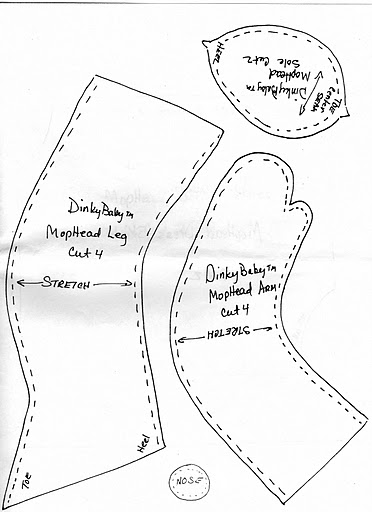 HEEL
DinkyBaby TM
MopHead
Sole Cut 2
TOE
Center
SEAM
DinkyBaby TM
MopHead Leg
Cut 4
STRETCH
DinkyBaby TM
MopHead ARM
Cut 4
STRETCH
Toe
Heel
NOSE